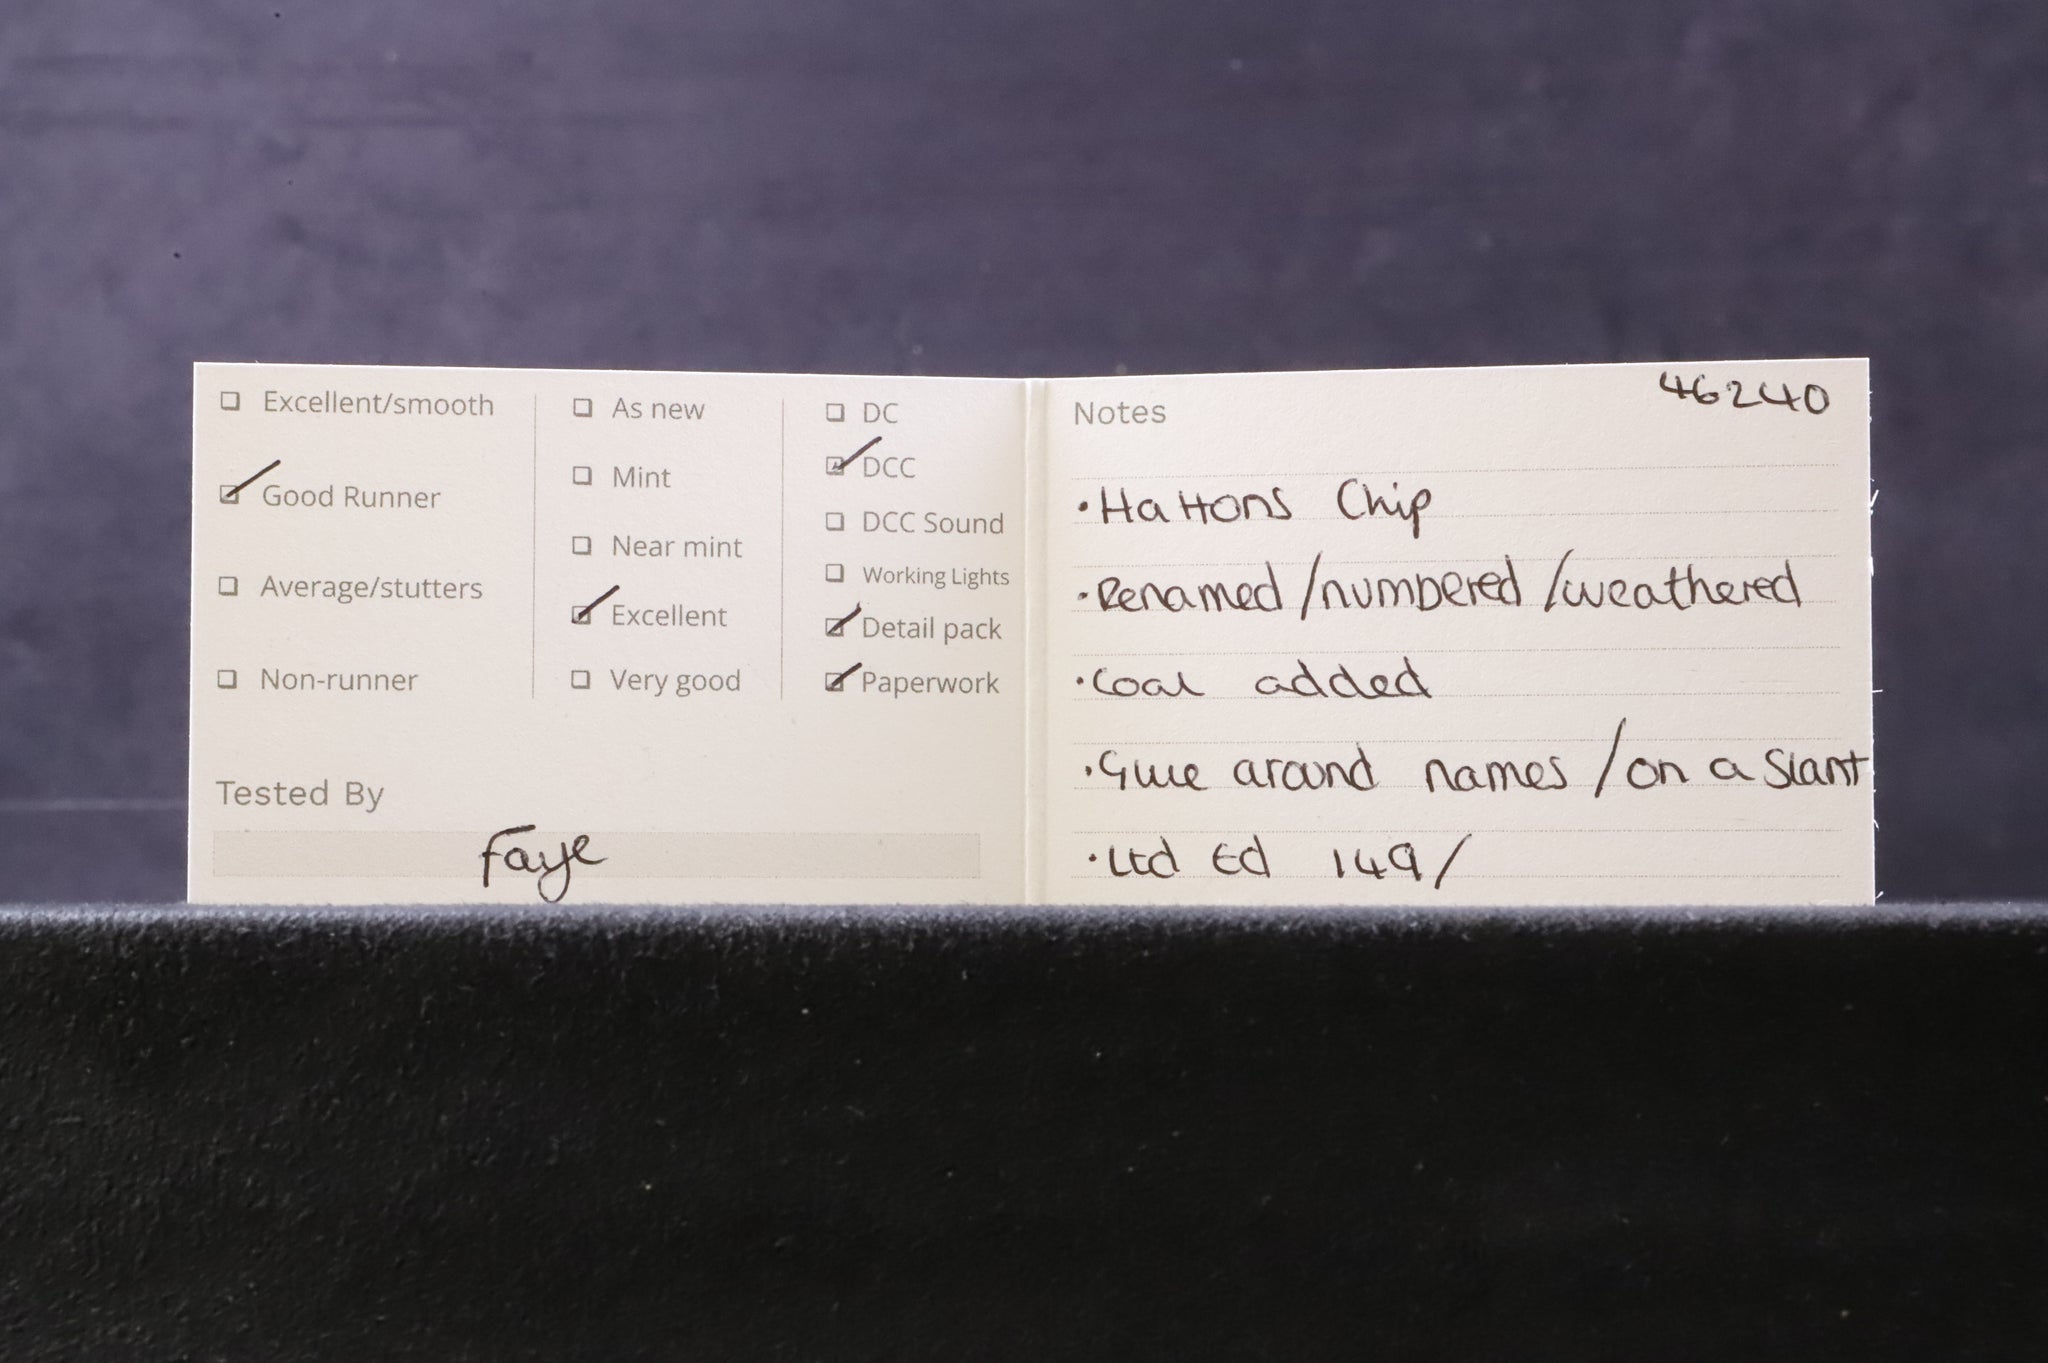 Excellent/smooth
Good Runner
Average/stutters
Non-runner
As new
Mint
Near mint
Excellent
Very good
DC
DCC
DCC Sound
Working Lights
Detail pack
Paperwork
Tested By
Faye
46240
Notes
• Hattons Chip
• Renamed/numbered/weathered
• Coal added
• Glue around names/on a slant
• Ltd Ed 149/